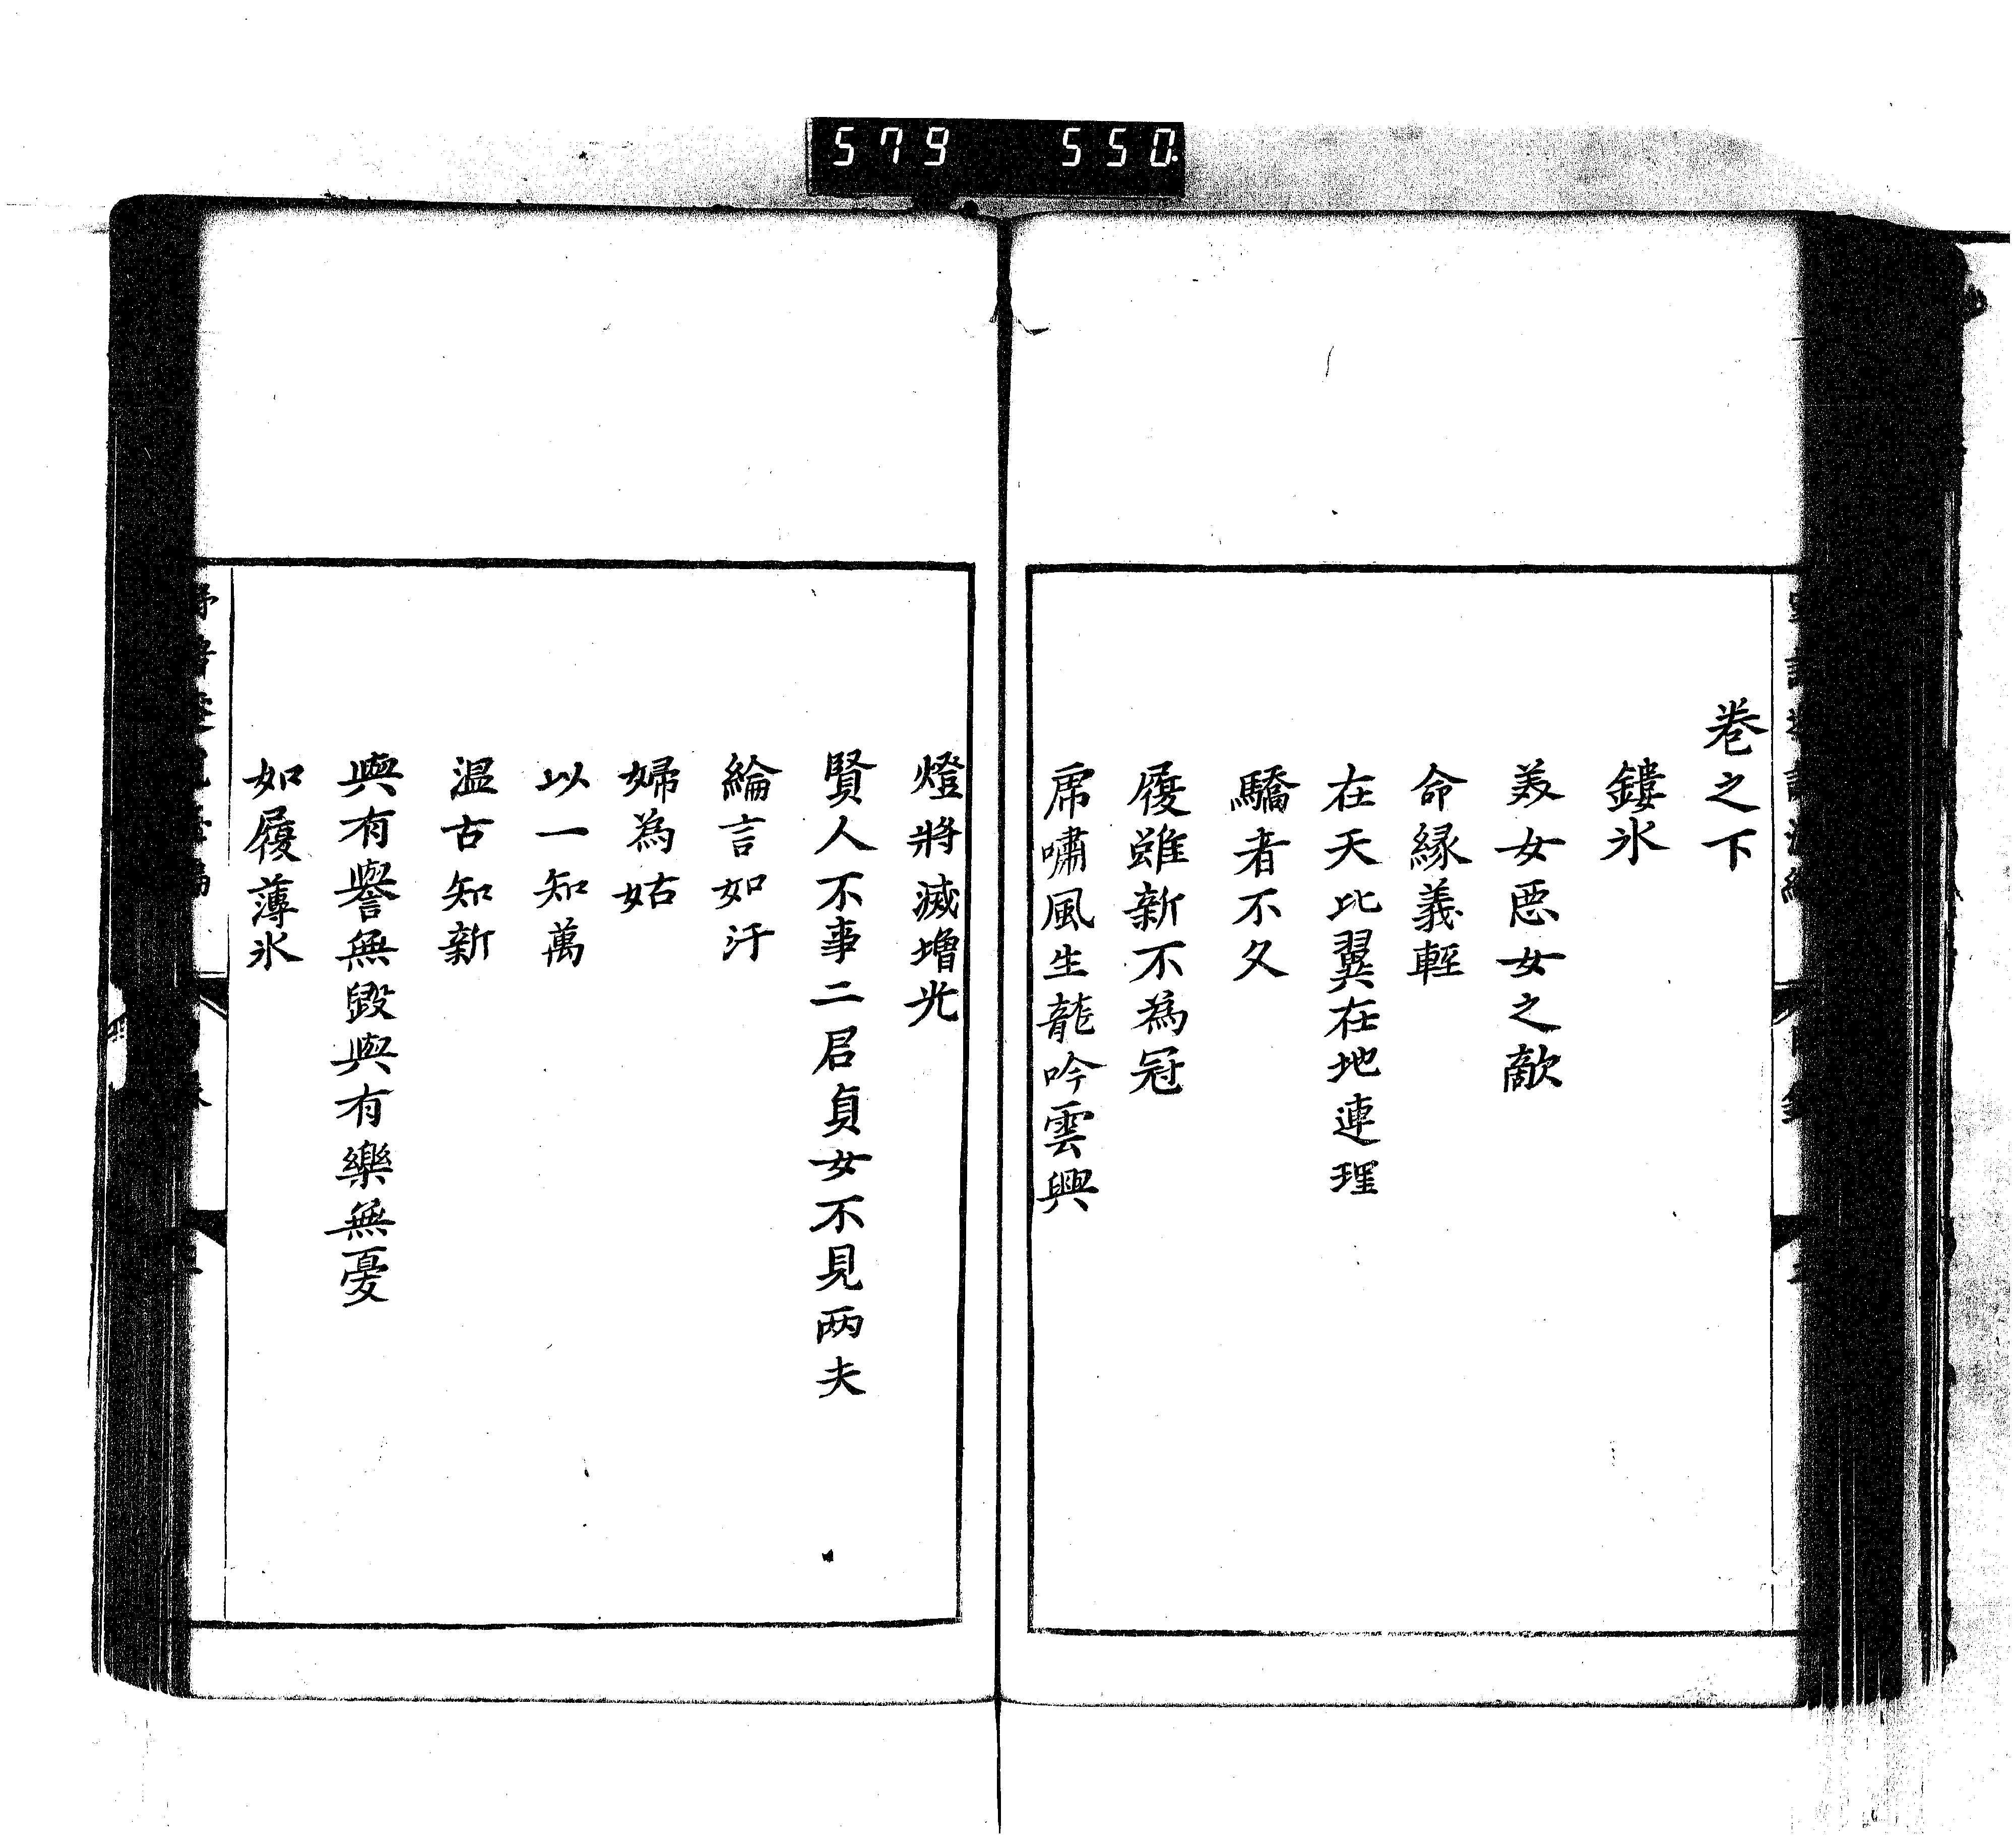 579 550
卷之下
鏤氷
美女悪女之敵
命縁義輕
在天比翼在地連理
驕者不久
履雖新不為冠
虎嘯風生龍吟雲興
燈將滅增光
賢人不事二君貞女不見两夫
綸言如汗
婦為姑
以一知萬
温古知新
與有譽無毀與有樂無憂
如履薄氷